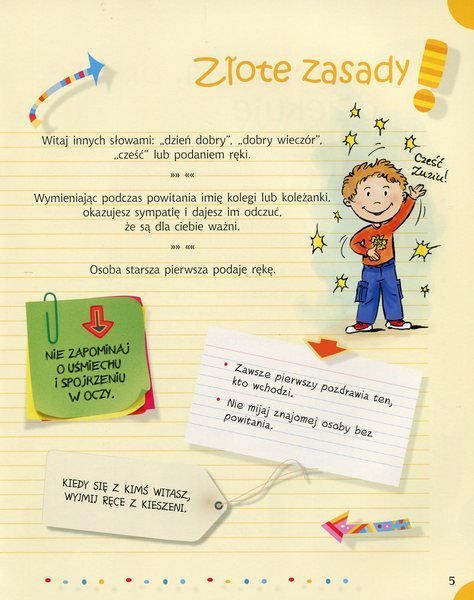 Złote zasady!
Witaj innych słowami: „dzień dobry”, „dobry wieczór”,
„cześć” lub podaniem ręki.
»» ««
Wymieniając podczas powitania imię kolegi lub koleżanki,
okazujesz sympatię i dajesz im odczuć,
że są dla ciebie ważni.
»» ««
Osoba starsza pierwsza podaje rękę.
Cześć
Zuziu!
NIE ZAPOMINAJ
O UŚMIECHU
I SPOJRZENIU
W OCZY.
• Zawsze pierwszy pozdrawia ten,
kto wchodzi.
• Nie mijaj znajomej osoby bez
powitania.
KIEDY SIĘ Z KIMŚ WITASZ,
WYJMIJ RĘCE Z KIESZENI.
5